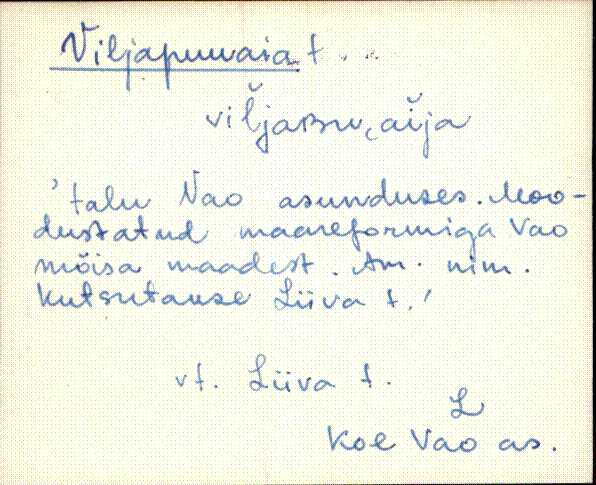 Viljapuuaia t.
viľjaʙu̬aĭja
'talu Vao asunduses. Moo-
dustatud maareformiga Vao
mõisa maadest. Am. nim.
Kutsutakse Liiva t.'
vt. Liiva t.
L
Koe Vao as.